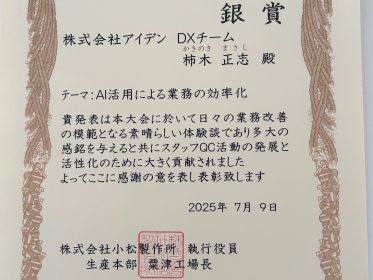 銀賞
株式会社アイデン DXチーム
かきのき まさし
柿木 正志 殿
テーマ:AI活用による業務の効率化
貴発表は本大会に於いて日々の業務改善
の模範となる素晴らしい体験談であり多大の
感銘を与えると共にスタッフQC活動の発展と
活性化のために大きく貢献されました
よってここに感謝の意を表し表彰致します
2025年 7月 9日
株式会社小松製作所 執行役員
生産本部 粟津工場長